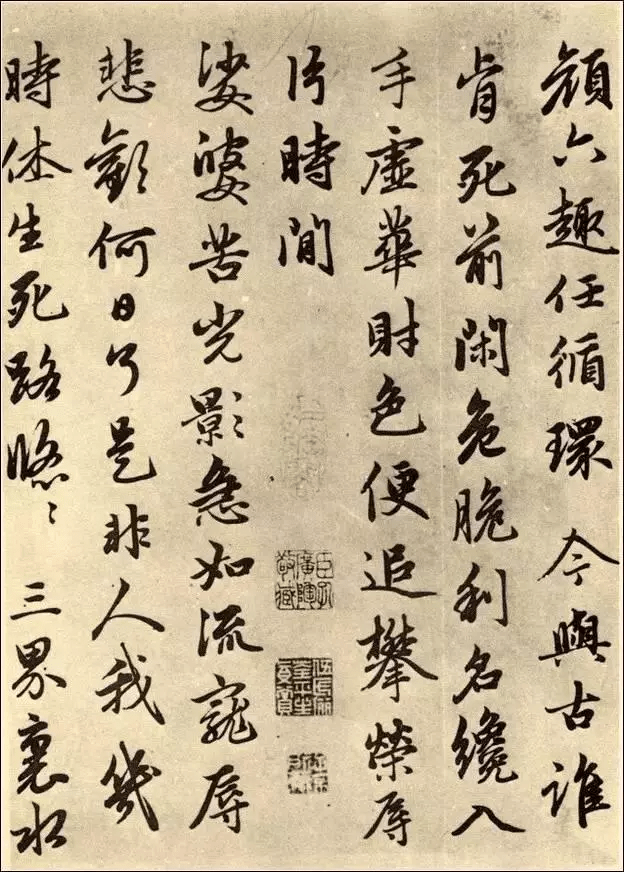 顔六趣任循環 今與古誰
肯死前閑危脆利名纔入
手虛華財色便追攀榮辱
片時間
娑婆苦光影急如流寵辱
悲歡何日了是非人我幾
時休生死路悠〻 三界裏水